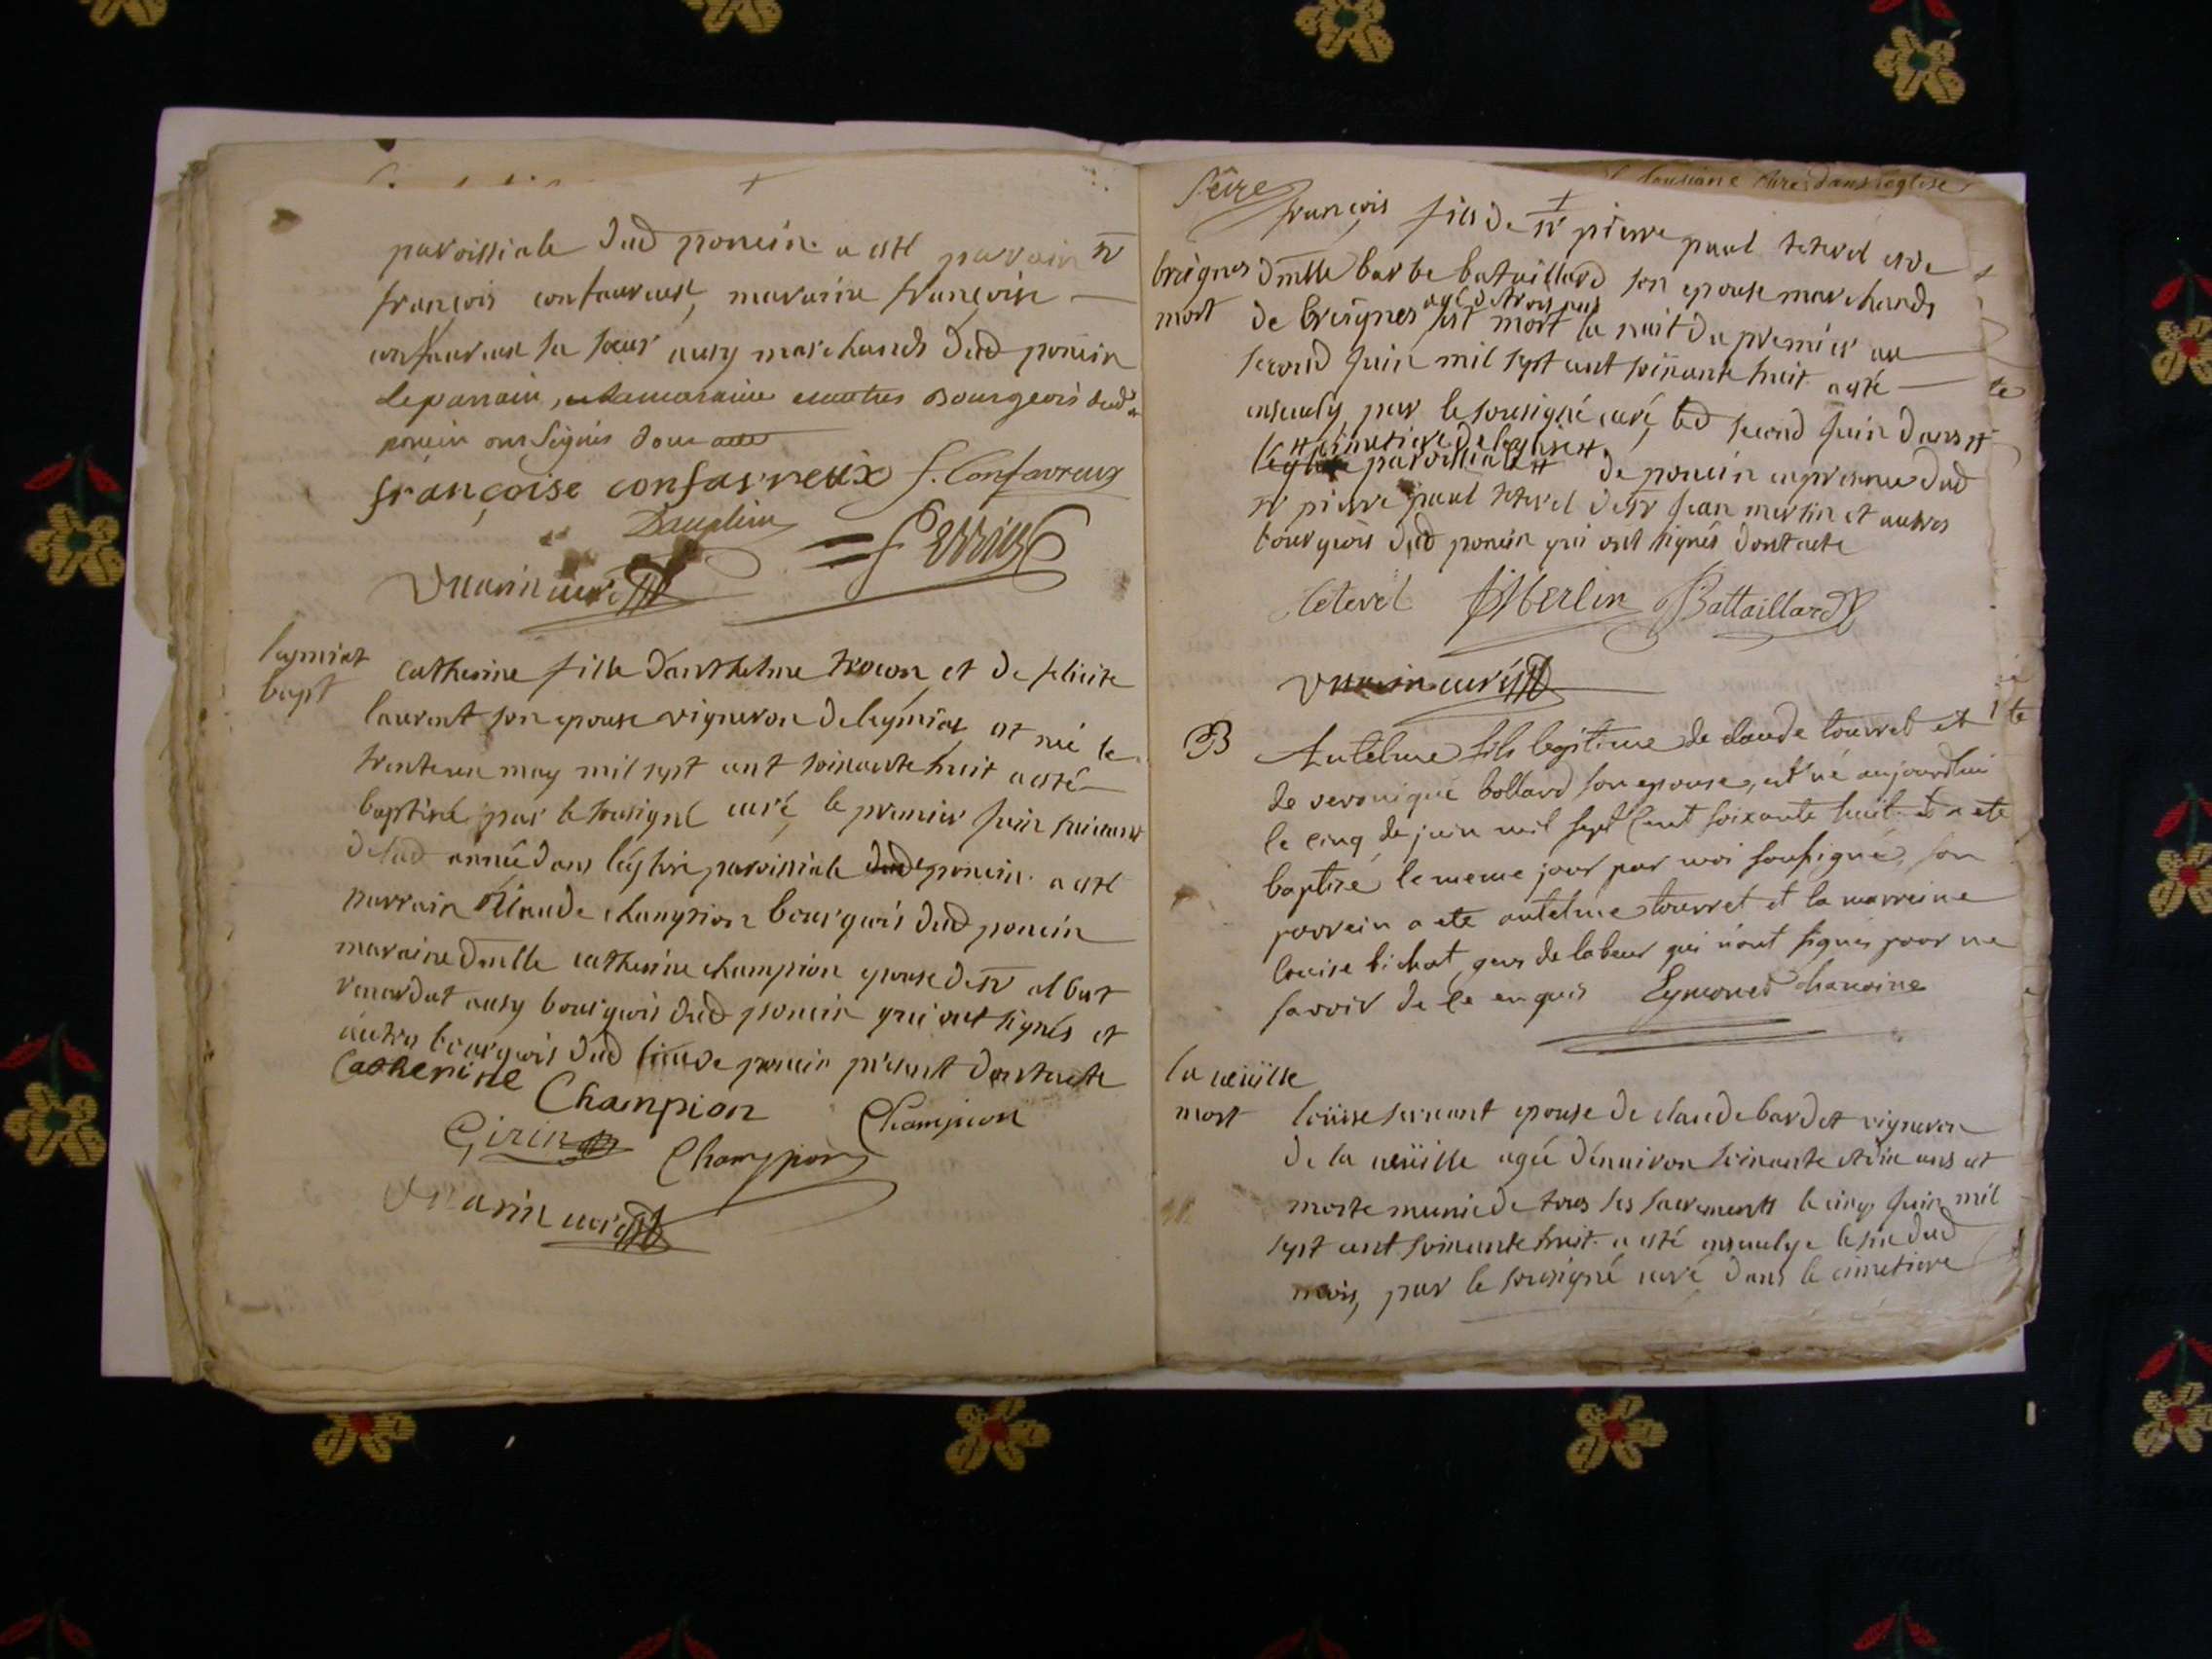 paroissiale dud poncin. a esté parain sr
françois confavreux, maraine françoise
confavreux sa soeur ausy marchands dud poncin
le parrain, et la maraine et autres Bourgeois dud
poncin ont signés dont acte
françoise confavreux f. Confavreux
Dauphin
Vuarin curé
leymiat
bapt
catherine fille d'anthelme trocon et de felicite
laurent son epouse vigneron de leymiat est né le
trente un may mil sept cent soixante huit a esté
baptisé par le sousigné curé, le premier juin suivant
delad année dans l'église paroissiale dud poncin. a esté
parrain claude champion bourgeois dud poncin
maraine dmlle catherine champion epouse de sr albert
ausy bourgeois dud poncin qui ont signés et
autres bourgeois dud lieu de poncin présent dont acte
Catherine Champion
Champion
Girin
Champion
Vuarin curé
françois fils de sr pierre paul tetevel et de
breignes
mort
dmlle barbe bataillard son epouse marchands
de breignes agé de trois ans est mort la nuit du premier au
second juin mil sept cent soixante huit a esté
ensevely par le sousigné curé, led second juin dans
cimetiere de leglise
l'eglise paroissiale de poncin en presence dud
sr pierre paul tetevel de sr jean merlin et autres
bourgeois dud poncin qui ont signés dont acte
tetevel Merlin Battaillard
Vuarin curé
B
Antelme fils legitime de claude tourret et
de veronique bollard son epouse, est né aujourdhui
le cinq de juin mil sept cent soixante huit et a ete
baptisé le meme jour par moi soussigné, son
parrein a ete antelme tourret et la marreine
louise bichat gens de labeur qui n'ont signés pour ne
savoir de ce enquis Eymoned chanoine
la ueüille
mort
loüise servant epouse de claude bardet vigneron
de la ueüille agée d'enuiron soixante et dix ans est
morte munie de tous ses sacrements le cinq juin mil
sept cent soixante huit. a esté ensevelye le six dud
mois, par le sousigné curé dans le cimetiere